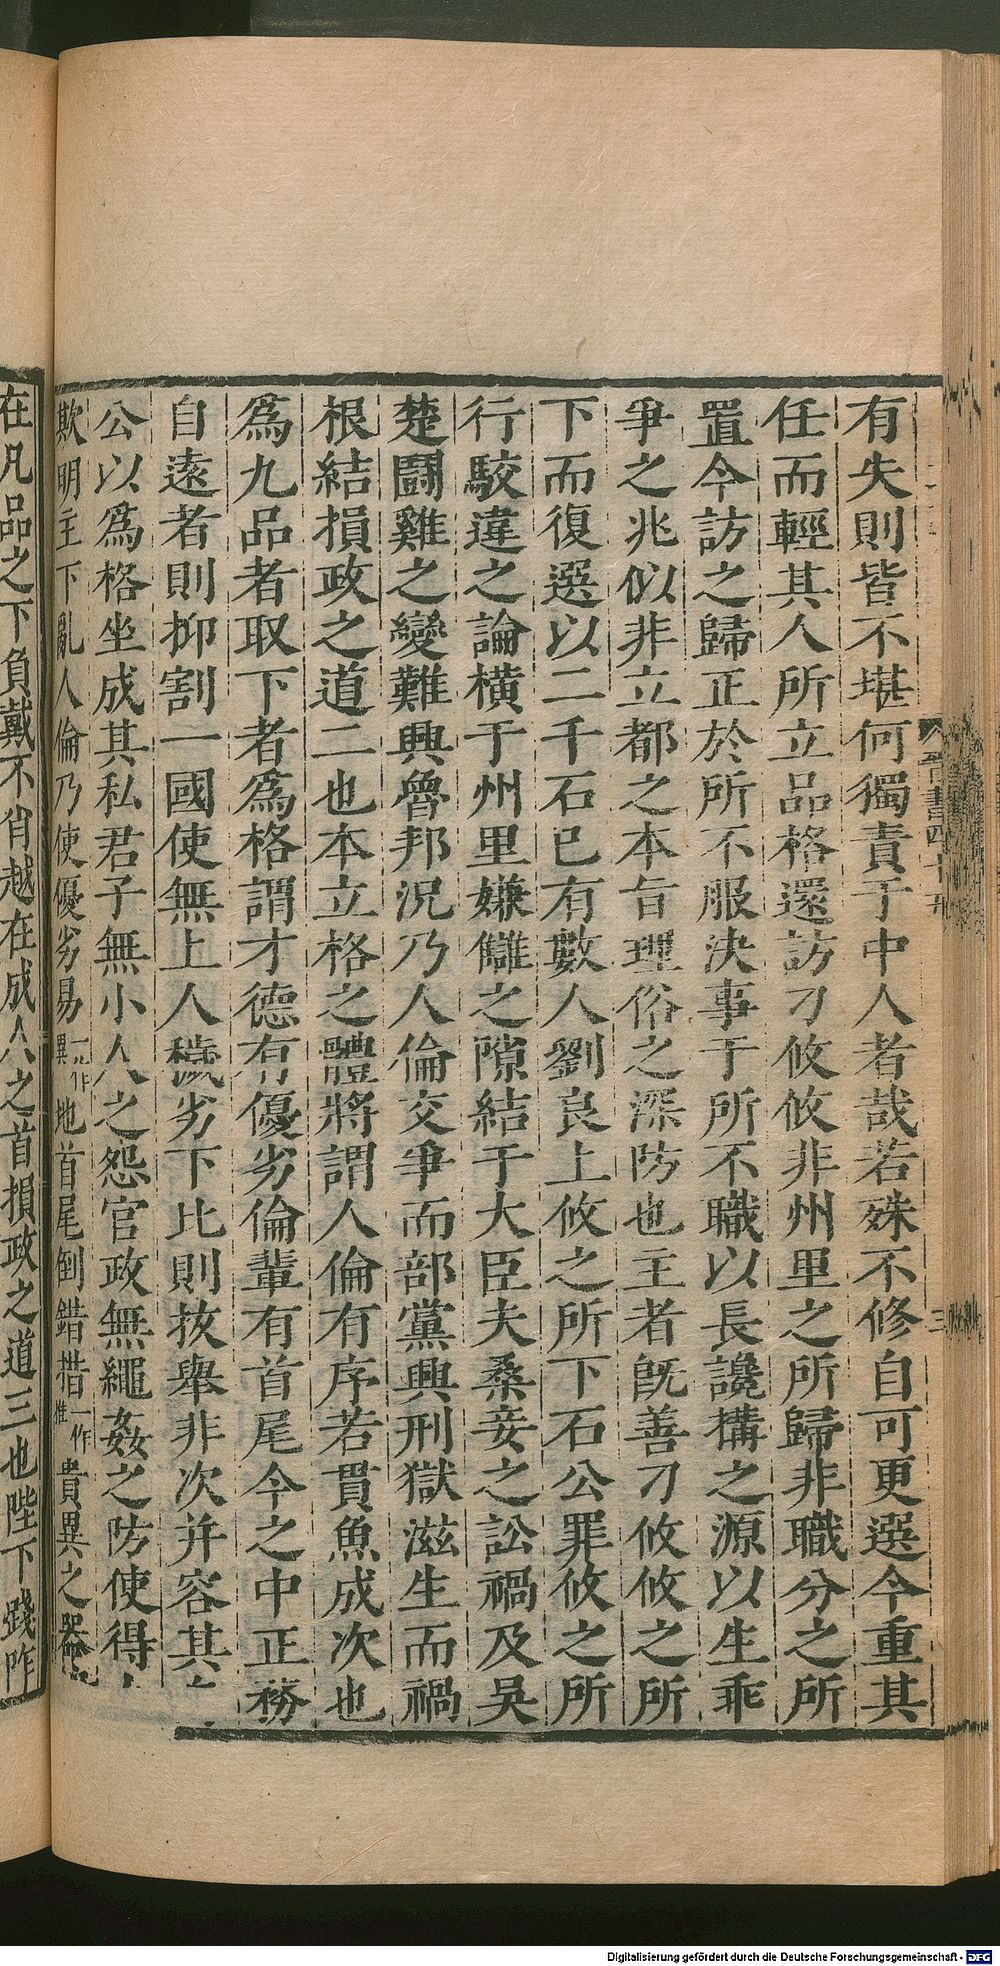 有失則皆不堪何獨責于中人者哉若殊不修自可更選今重其
任而輕其人所立品格還訪刁攸攸非州里之所歸非職分之所
置今訪之歸正於所不服決事于所不職以長讒構之源以生乖
爭之兆似非立都之本旨理俗之深防也主者旣善刁攸攸之所
下而復選以二千石已有數人劉良上攸之所下石公罪攸之所
行駮違之論橫于州里嫌讎之隙結于大臣夫桑妾之訟禍及吳
楚鬬雞之變難興魯邦況乃人倫交爭而部黨興刑獄滋生而禍
根結損政之道二也本立格之體將謂人倫有序若貫魚成次也
爲九品者取下者爲格謂才德有優劣倫輩有首尾今之中正務
自遠者則抑割一國使無上人穢劣下比則拔舉非次并容其
公以爲格坐成其私君子無小人之怨官政無繩姦之防使得
欺明主下亂人倫乃使優劣易一作異地首尾倒錯措一作推貴異之器
在凡品之下負戴不肖越在成人之首損政之道三也陛下踐阼
晉書四十五
三
Digitalisierung gefördert durch die Deutsche Forschungsgemeinschaft - DFG